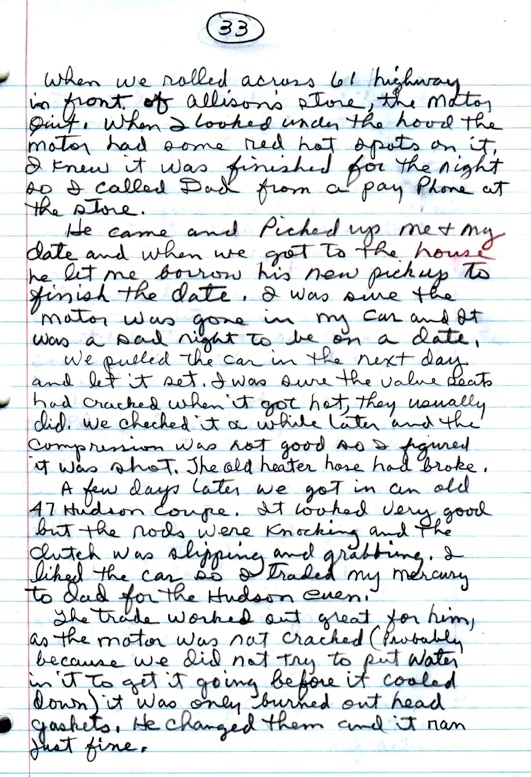 33
When we rolled across 61 highway
in front of allison's store, the motor
quit. When I looked under the hood the
motor had some red hot spots on it.
I knew it was finished for the night
so I called Dad from a pay Phone at
the store.
He came and Picked up me & my
date and when we got to the house
he let me borrow his new pickup to
finish the date. I was sure the
motor was gone in my car and It
was a sad night to be on a date.
We pulled the car in the next day
and let it set. I was sure the valve seats
had cracked when it got hot, they usually
did. We checked it a while later and the
compression was not good so I figured
it was shot. The old heater hose had broke.
A few days later we got in an old
47 Hudson Coupe. It looked very good
but the rods were knocking and the
clutch was slipping and grabbing. I
liked the car so I traded my mercury
to dad for the Hudson even.
The trade worked out great for him,
as the motor was not cracked (Probably
because we did not try to put water
in it to get it going before it cooled
down) it was only burned out head
gaskets. He changed them and it ran
just fine.